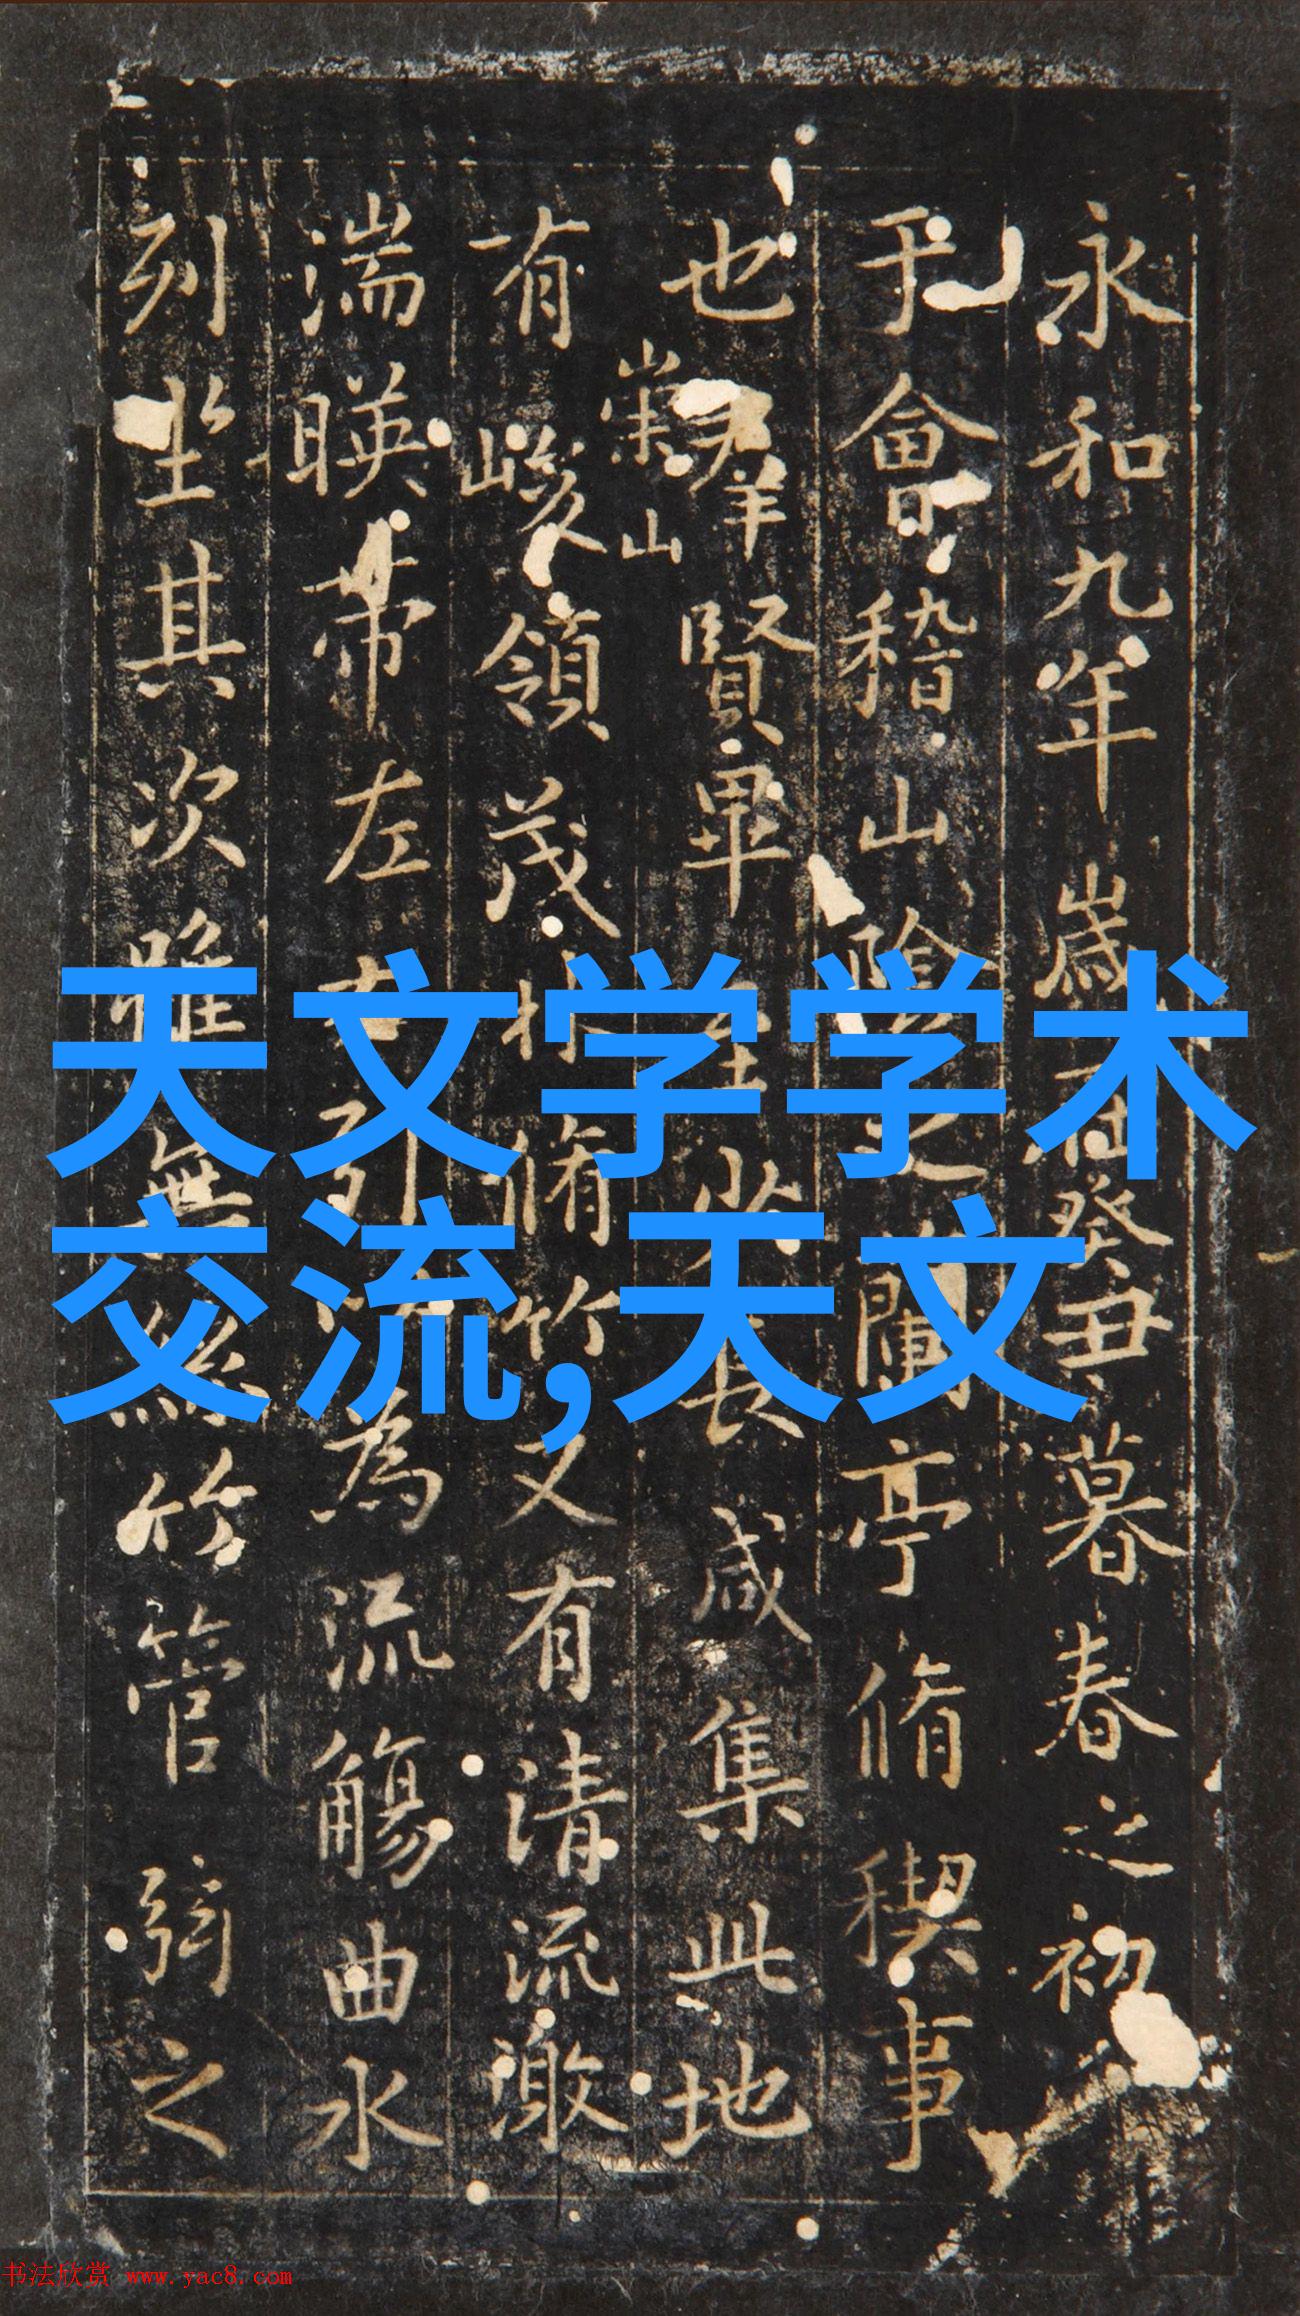 永和九年歲在癸丑暮春之初
于會稽山陰之蘭亭脩稧事
也羣賢畢至少長咸集此地
崇山
有峻領茂林脩竹又有清流激
湍暎帶左右引以為流觴曲水
列坐其次雖無絲竹管弦之
天文学学术
交流,天文
书法欣赏 www.yac8.com